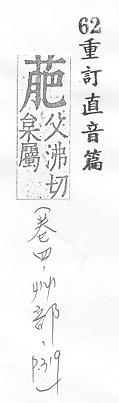 62重訂直音篇
萉
父沸切
枲屬
(卷四、艸部、p.319)